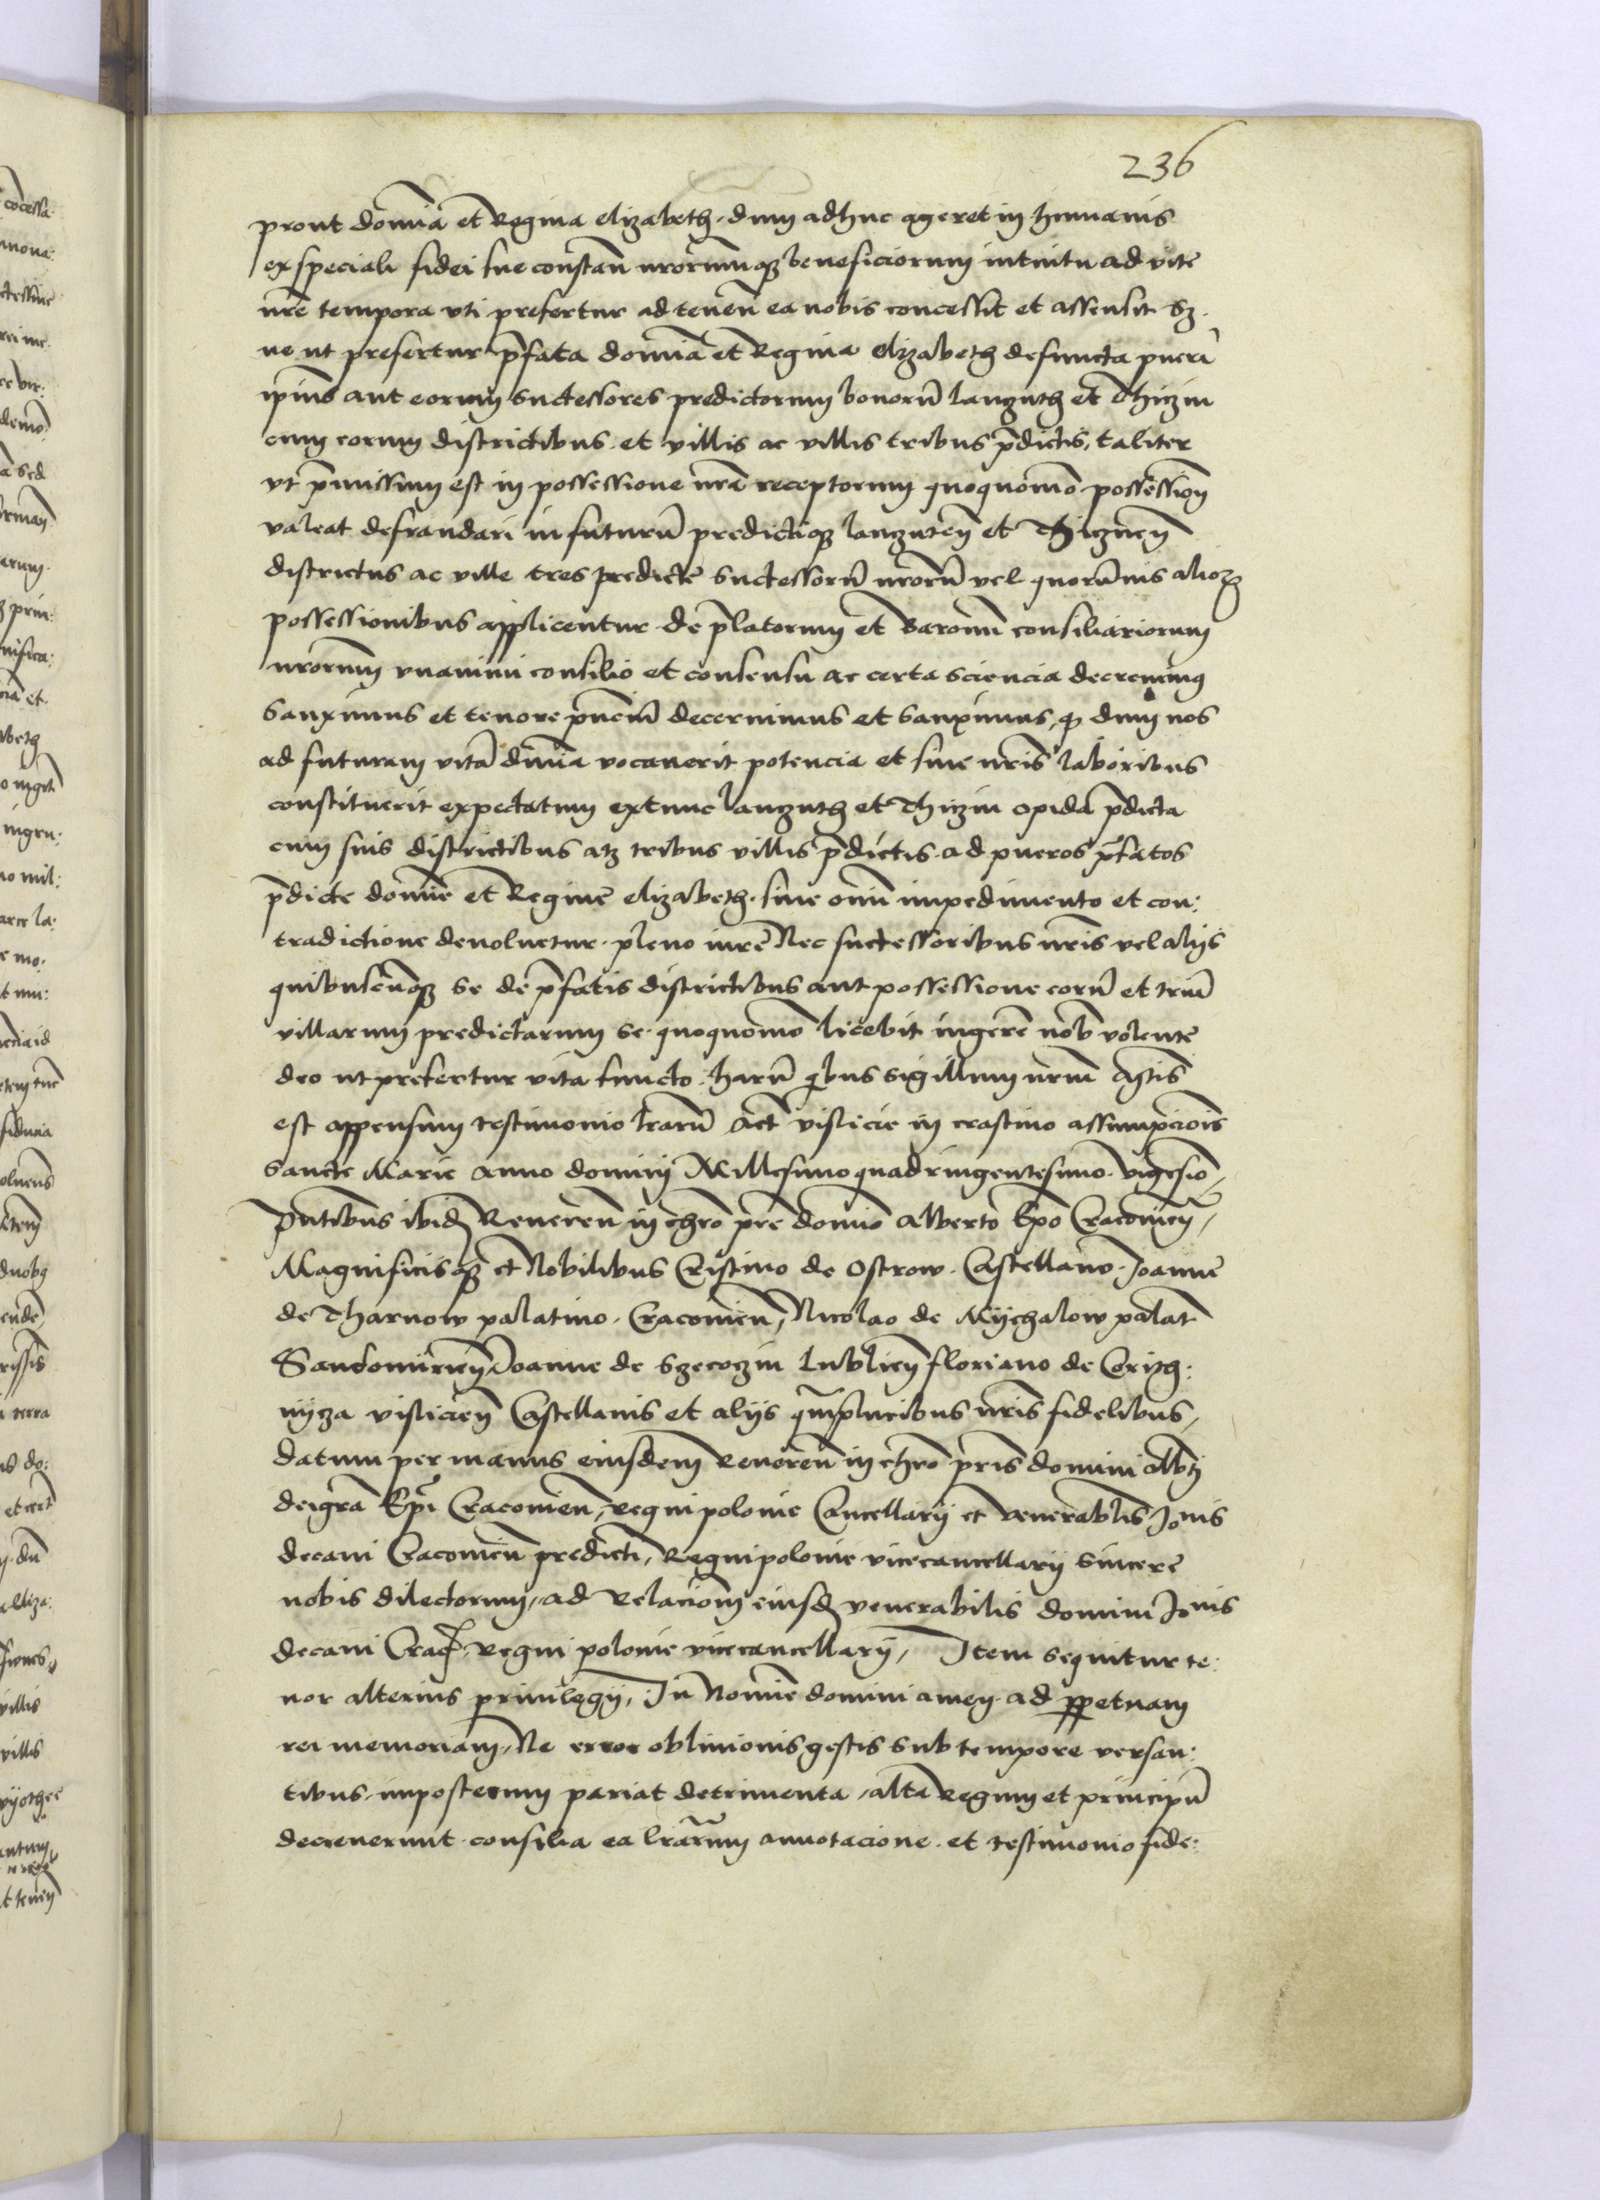 236
prout domīa et Regina elizabeth. dum adhuc ageret in humanis
ex speciali fidei sue constan̄ nrorumqꝫ beneficiorum intuitu ad vite
nrē tempora vti prefertur ad tenen̄ ea nobis concessit et assensit Sꝫ.
ne ut prefertur p̄fata domīa et Regina elizabeth defuncta pueri
ip̄ius aut eorum successores predictorum bonorū lanczuth et Thiczin
cum eorum districtibus et villis ac villis tribus p̄dictis, taliter
vt p̄missum est in possessione nrā receptorum quoquomō possession̄
valeat defraudari in futurū predictiqꝫ lanczuten̄ et Thicznen̄
districtus ac ville tres predicte successorū nrorū vel quorūuis alioꝝ
possessionibus applicentur de p̄latorum et Baronum consiliariorum
nrorum vnanimi consilio et consensu ac certa sciencia decreuimꝰ
Sanximus et tenore p̄nciū decernimus et sanximus, qꝫ dum nos
ad futuram vitā diuīa vocauerit potencia et sine nrīs laboribus
constituerit expectatum extunc lanczuth et Thiczin opida p̄dicta
cum suis districtibus atqꝫ tribus villis p̄dictis ad pueros p̄fatos
p̄dicte domīe et Regine elizabeth. sine omī impedimento et con:
tradictione deuoluetur. pleno iurē Nec successoribus nrīs vel alijs
quibuscūqꝫ se de p̄fatis districtibus aut possessione eorū et triū
villarum predictarum se quoquomō licebit ingerē nob̄ volente
deo ut prefertur vita functo. harū qⁱbus sigillum nrm̄ Agtīs
est appensum testimonio lrārū Act̄ vislicie in crastino assumpcioīs
Sancte Marie anno domini Millesimo quadringentesimo. vigesīo,
Pn̄tibus ibidꝫ Reueren̄ in chrō pr̄e domīo Alberto Ep̄o Cracouien̄,
Magnificisqꝫ et Nobilibus Cristino de Ostrow. Castellano. Joanne
de Tharnow palatino. Cracouien̄, Nicolao de Mijchalow palat̄
Sandomirien̄ Joanne de Szecoczin Lublien̄ floriano de Corith:
nijcza vislicien̄ Castellanis et alijs qm̄pluribus nrīs fidelibus,
datum per manus eiusdem Reueren̄ in chrō pr̄is domini Alb̄ti
dei gr̄a Ep̄i Cracouien̄, Regni polonie Cancellarij et venerabilis Joīnis
decani Cracouien̄ predicti, Regni polonie vicecancellarij sincere
nobis dilectorum, ad Relacioēm eiusdꝫ venerabilis domini Joīnis
decani Crac̄. Regni polonie vicecancellarij, Item sequitur te:
nor alterius priuilegij, In Nomīe domini amen ad ꝑpetuam
rei memoriam, Ne error obliuionis gestis sub tempore versan:
tibus imposterum pariat detrimenta, alta Regum et principū
decreuerunt consilia ea lrārum annotacione et testimonio fide: